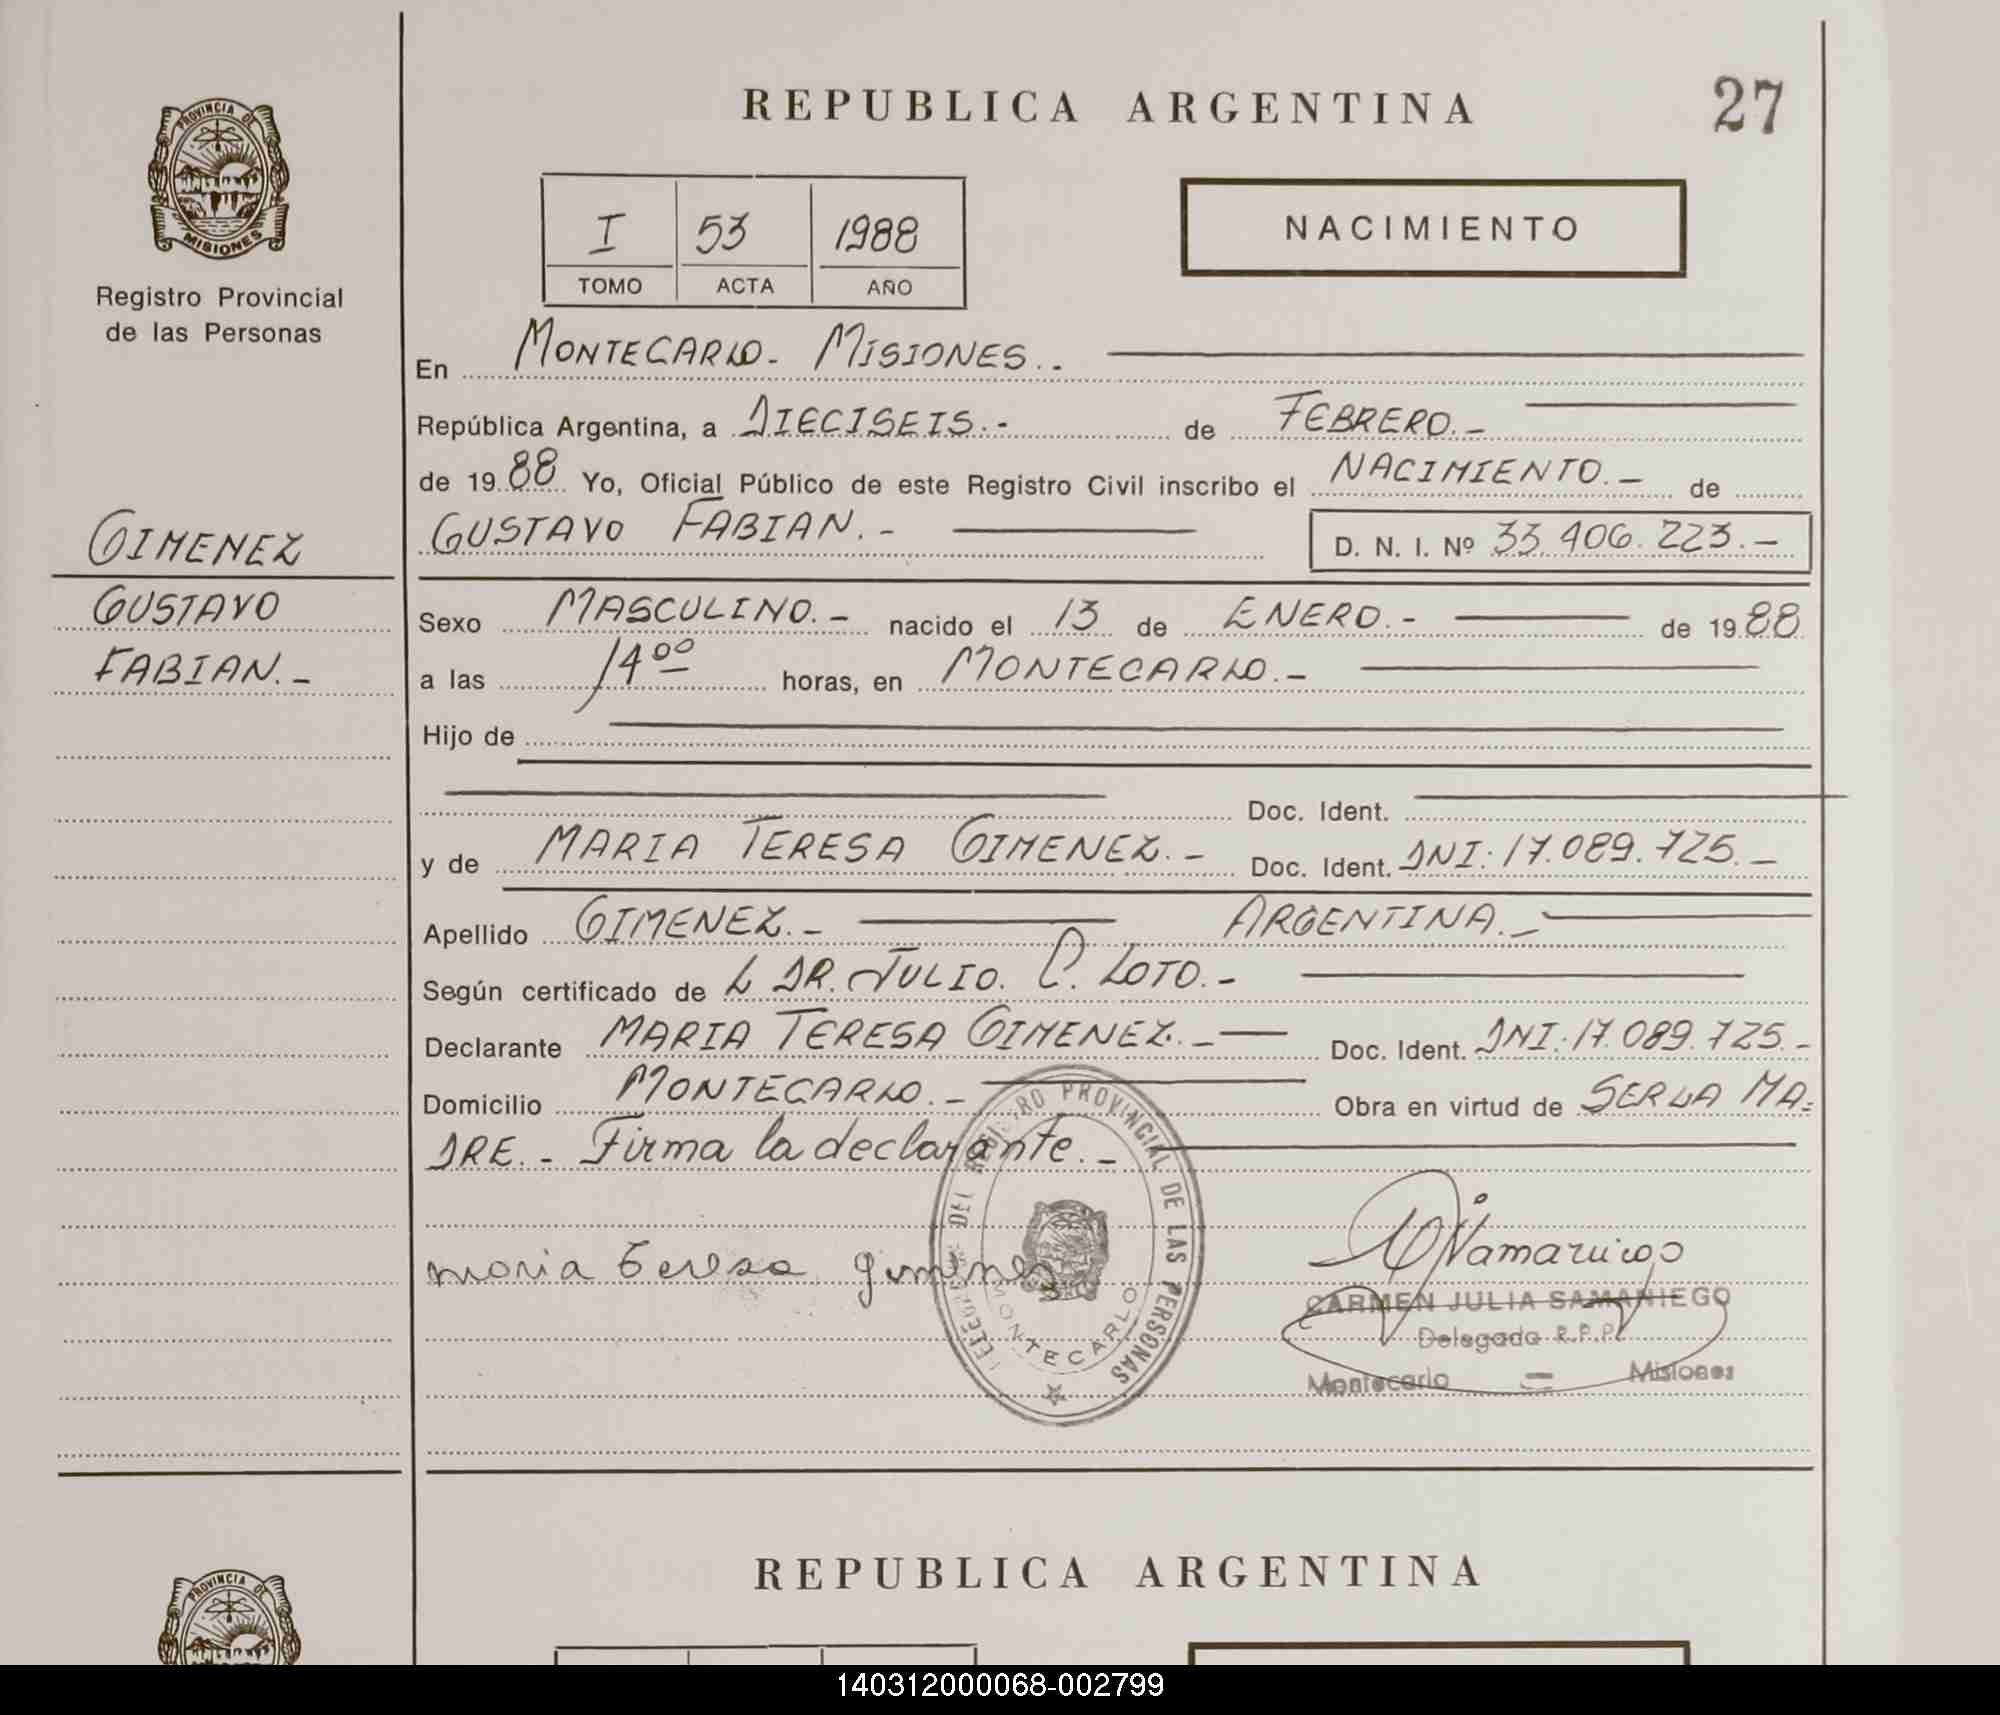 REPUBLICA ARGENTINA
27
PROVINCIA DE
MISIONES
Registro Provincial
de las Personas
I 53 1988
TOMO ACTA AÑO
NACIMIENTO
En MONTECARLO- MISIONES..-
República Argentina, a DIECISEIS.- de FEBRERO.-
de 1988 Yo, Oficial Público de este Registro Civil inscribo el NACIMIENTO.- de
GUSTAVO FABIAN.- D. N. I. Nº 33.406.223.-
GIMENEZ
GUSTAVO
FABIAN.-
Sexo MASCULINO.- nacido el 13 de ENERO.- de 1988
a las 14ºº horas, en MONTECARLO.-
Hijo de
Doc. Ident.
y de MARIA TERESA GIMENEZ.- Doc. Ident. DNI: 17.089.725.-
Apellido GIMENEZ.- ARGENTINA.-
Según certificado de L DR. JULIO. C. LOTO.-
Declarante MARIA TERESA GIMENEZ.- Doc. Ident. DNI: 17.089.725.-
Domicilio MONTECARLO.- Obra en virtud de SER LA MA=
DRE.- Firma la declarante.-
DEL REGISTRO PROVINCIAL DE LAS PERSONAS
MONTECARLO
maria teresa gimenez
CARMEN JULIA SAMANIEGO
Delegada R.P.P.
Montecarlo - Misiones
REPUBLICA ARGENTINA
PROVINCIA DE
140312000068-002799